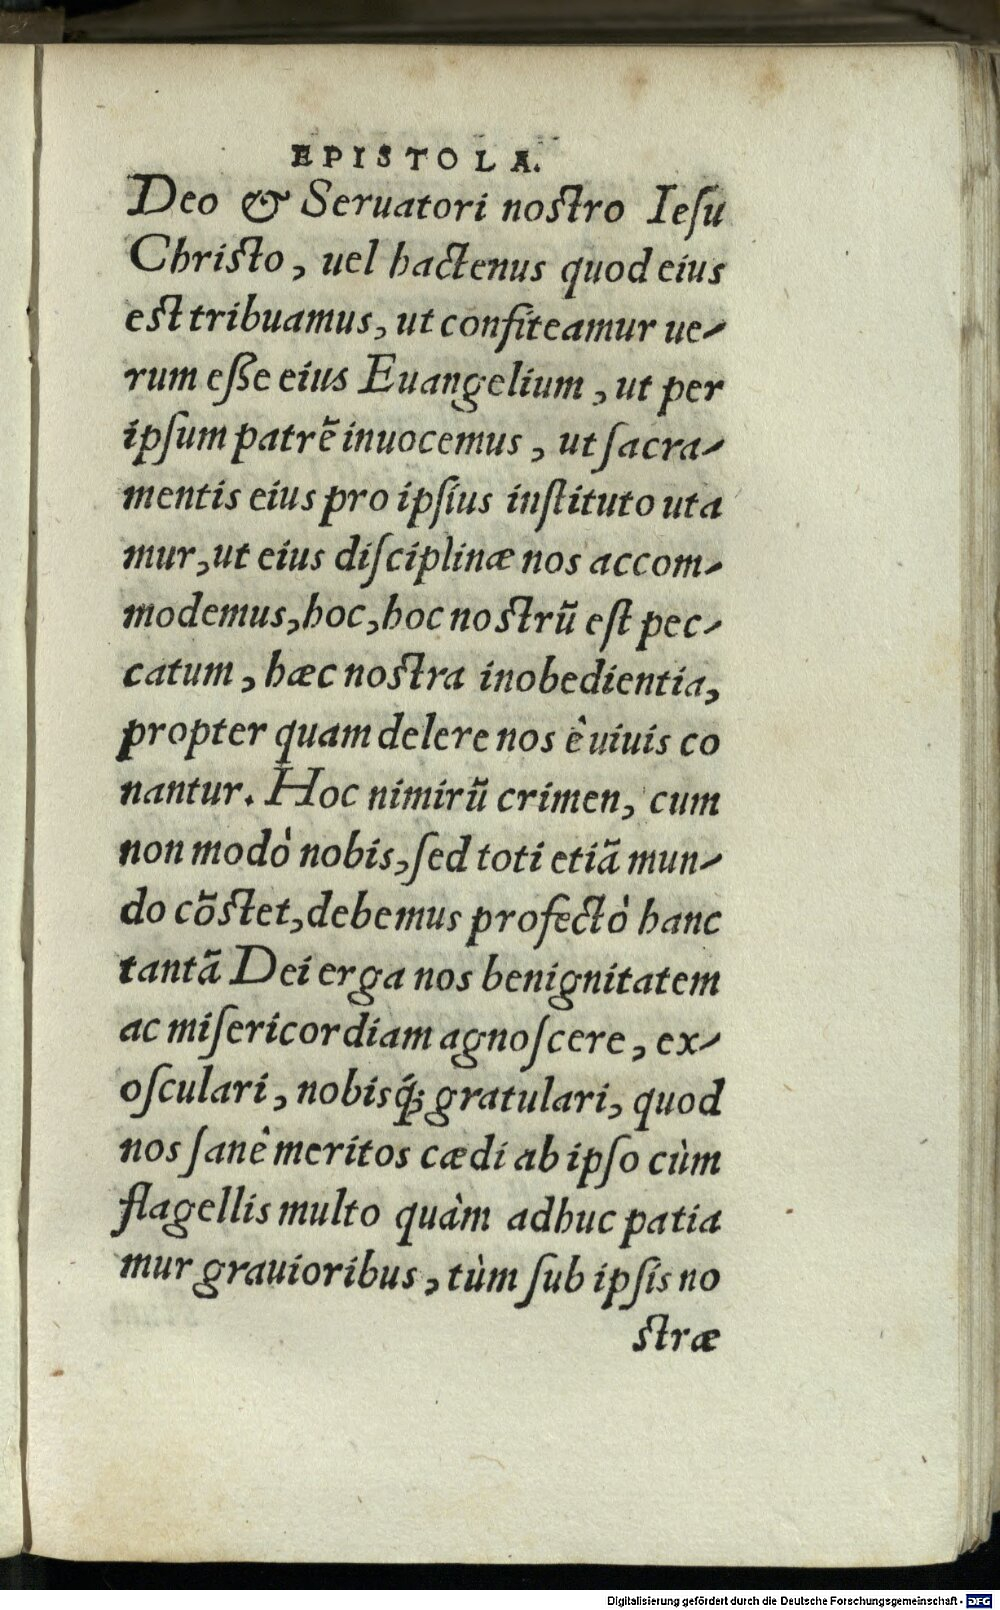 EPISTOLA.
Deo & Seruatori nostro Iesu
Christo, uel hactenus quod eius
est tribuamus, ut confiteamur ue-
rum esse eius Euangelium, ut per
ipsum patrē inuocemus, ut sacra-
mentis eius pro ipsius instituto uta
mur, ut eius disciplinæ nos accom-
modemus, hoc, hoc nostrū est pec-
catum, hæc nostra inobedientia,
propter quam delere nos ê uiuis co
nantur. Hoc nimirū crimen, cum
non modò nobis, sed toti etiā mun-
do cōstet, debemus profectò hanc
tantā Dei erga nos benignitatem
ac misericordiam agnoscere, ex-
osculari, nobisq́; gratulari, quod
nos sanê meritos cædi ab ipso cùm
flagellis multo quàm adhuc patia
mur grauioribus, tùm sub ipsis no
stræ
Digitalisierung gefördert durch die Deutsche Forschungsgemeinschaft - DFG